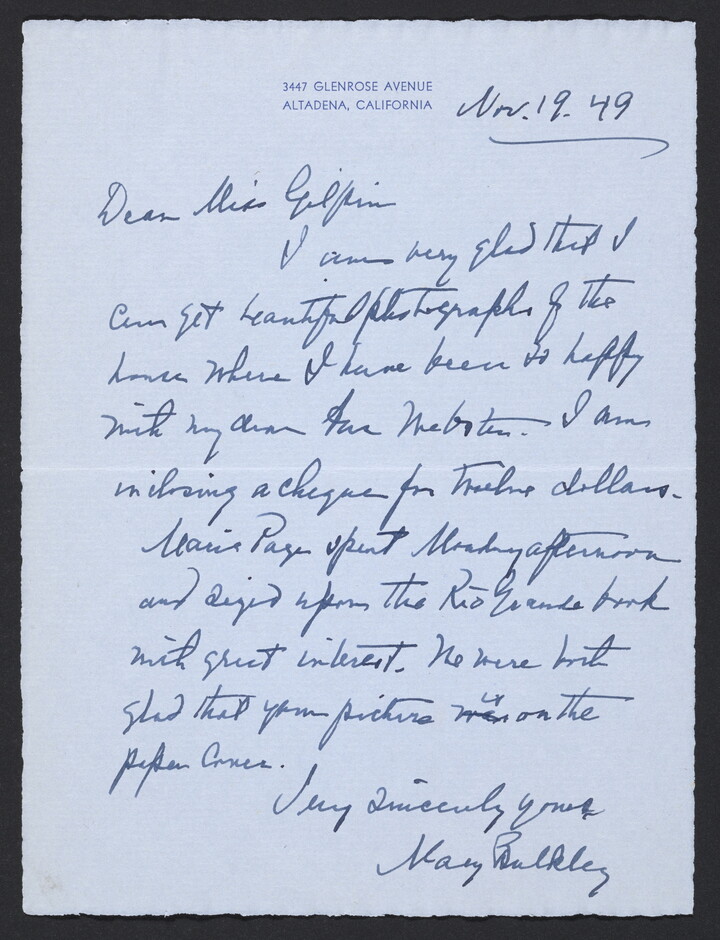 3447 GLENROSE AVENUE
ALTADENA, CALIFORNIA
Nov. 19. 49
Dear Miss Gilpin
I am very glad that I
can get beautiful photographs of the
house where I have been so happy
with my dear Webster. I am
inclosing a cheque for twelve dollars.
Maria Page spent Monday afternoon
and seized upon the Rio Grande book
with great interest. We were both
glad that your picture is on the
paper cover.
Very sincerely yours
Mary Bulkley